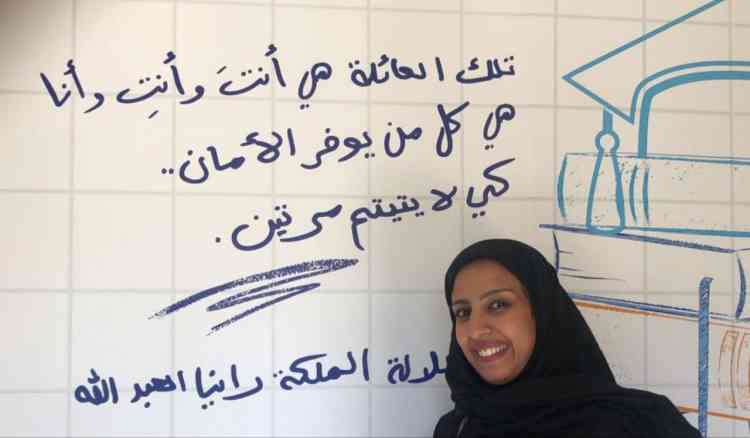 تلك العائلة هي أنتَ وأنتِ وأنا
هي كل من يوفر الأمان..
كي لا يتيتم مرتين.
لالة الملكة رانيا العبد الله